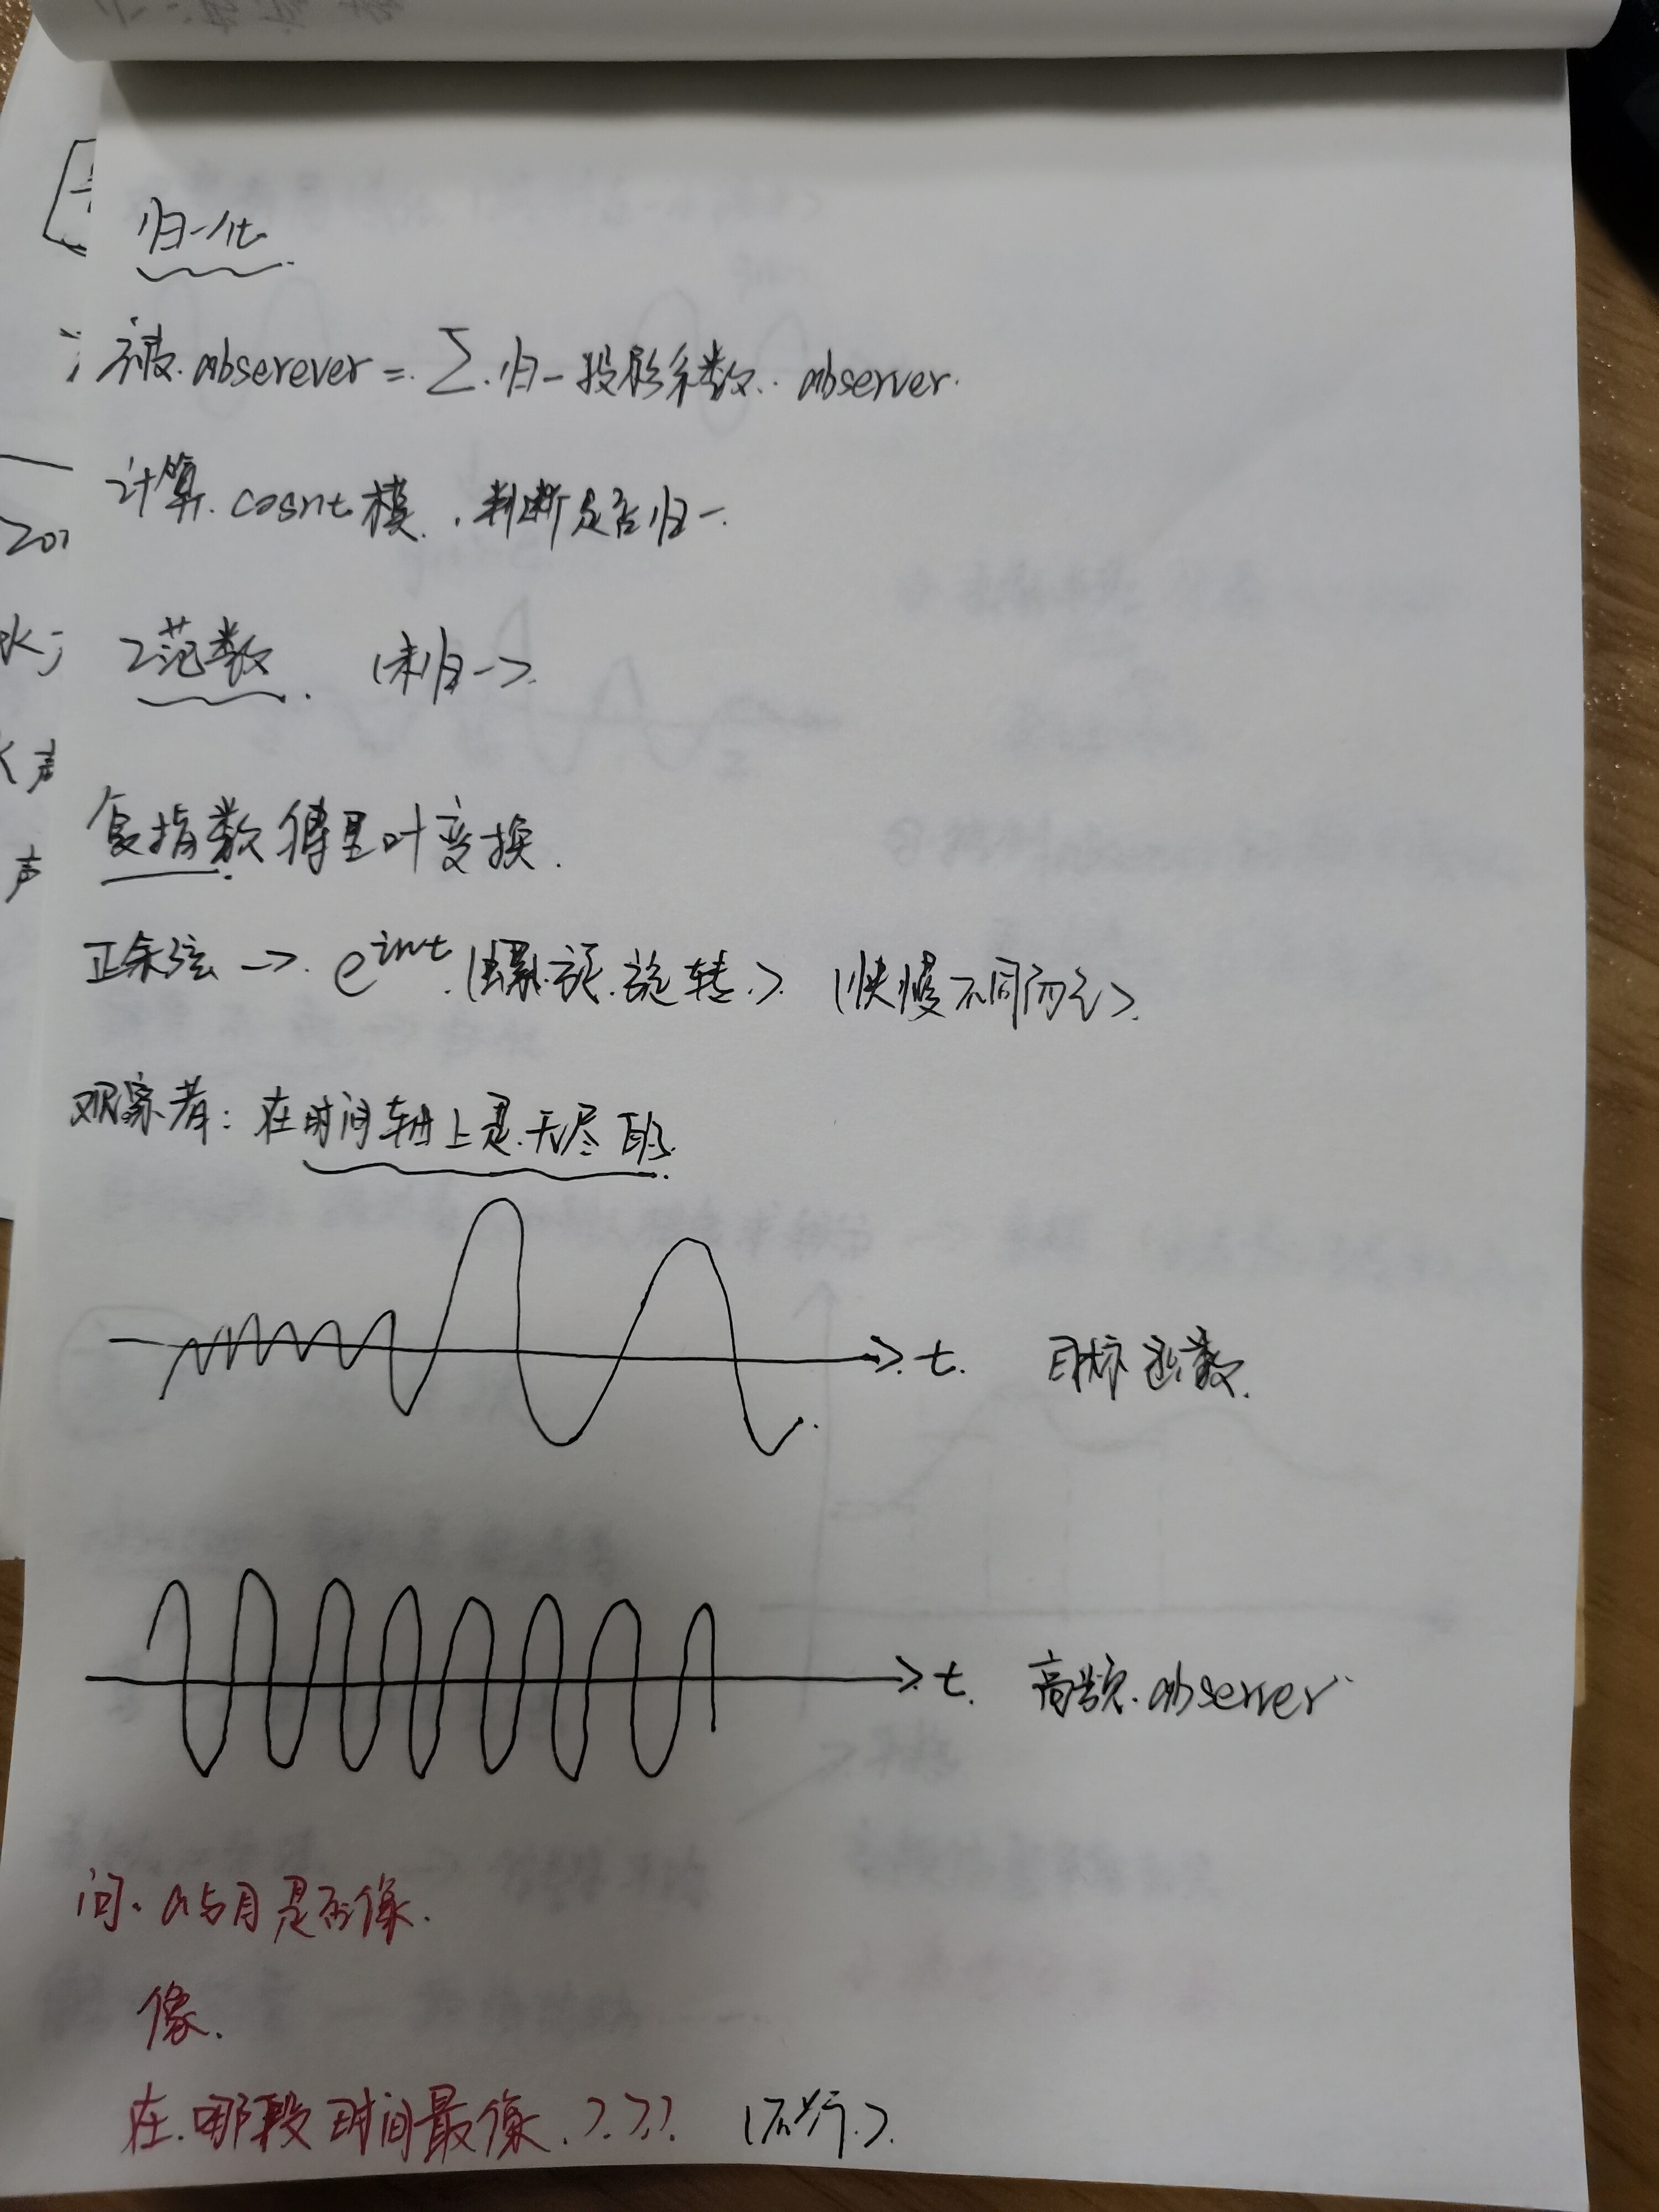 归一化
被 observer = Σ 归一投影系数 · observer.
计算 cosnt 模, 判断是否归一.
2范数. (未归一).
复指数傅里叶变换.
正余弦 → e^{int} (螺旋旋转.) (快慢不同而已).
观察者: 在时间轴上是无尽的.
t. 目标函数.
t. 高频. observer
问. a与 是否像.
像.
在哪段时间最像. ??? (不行.)